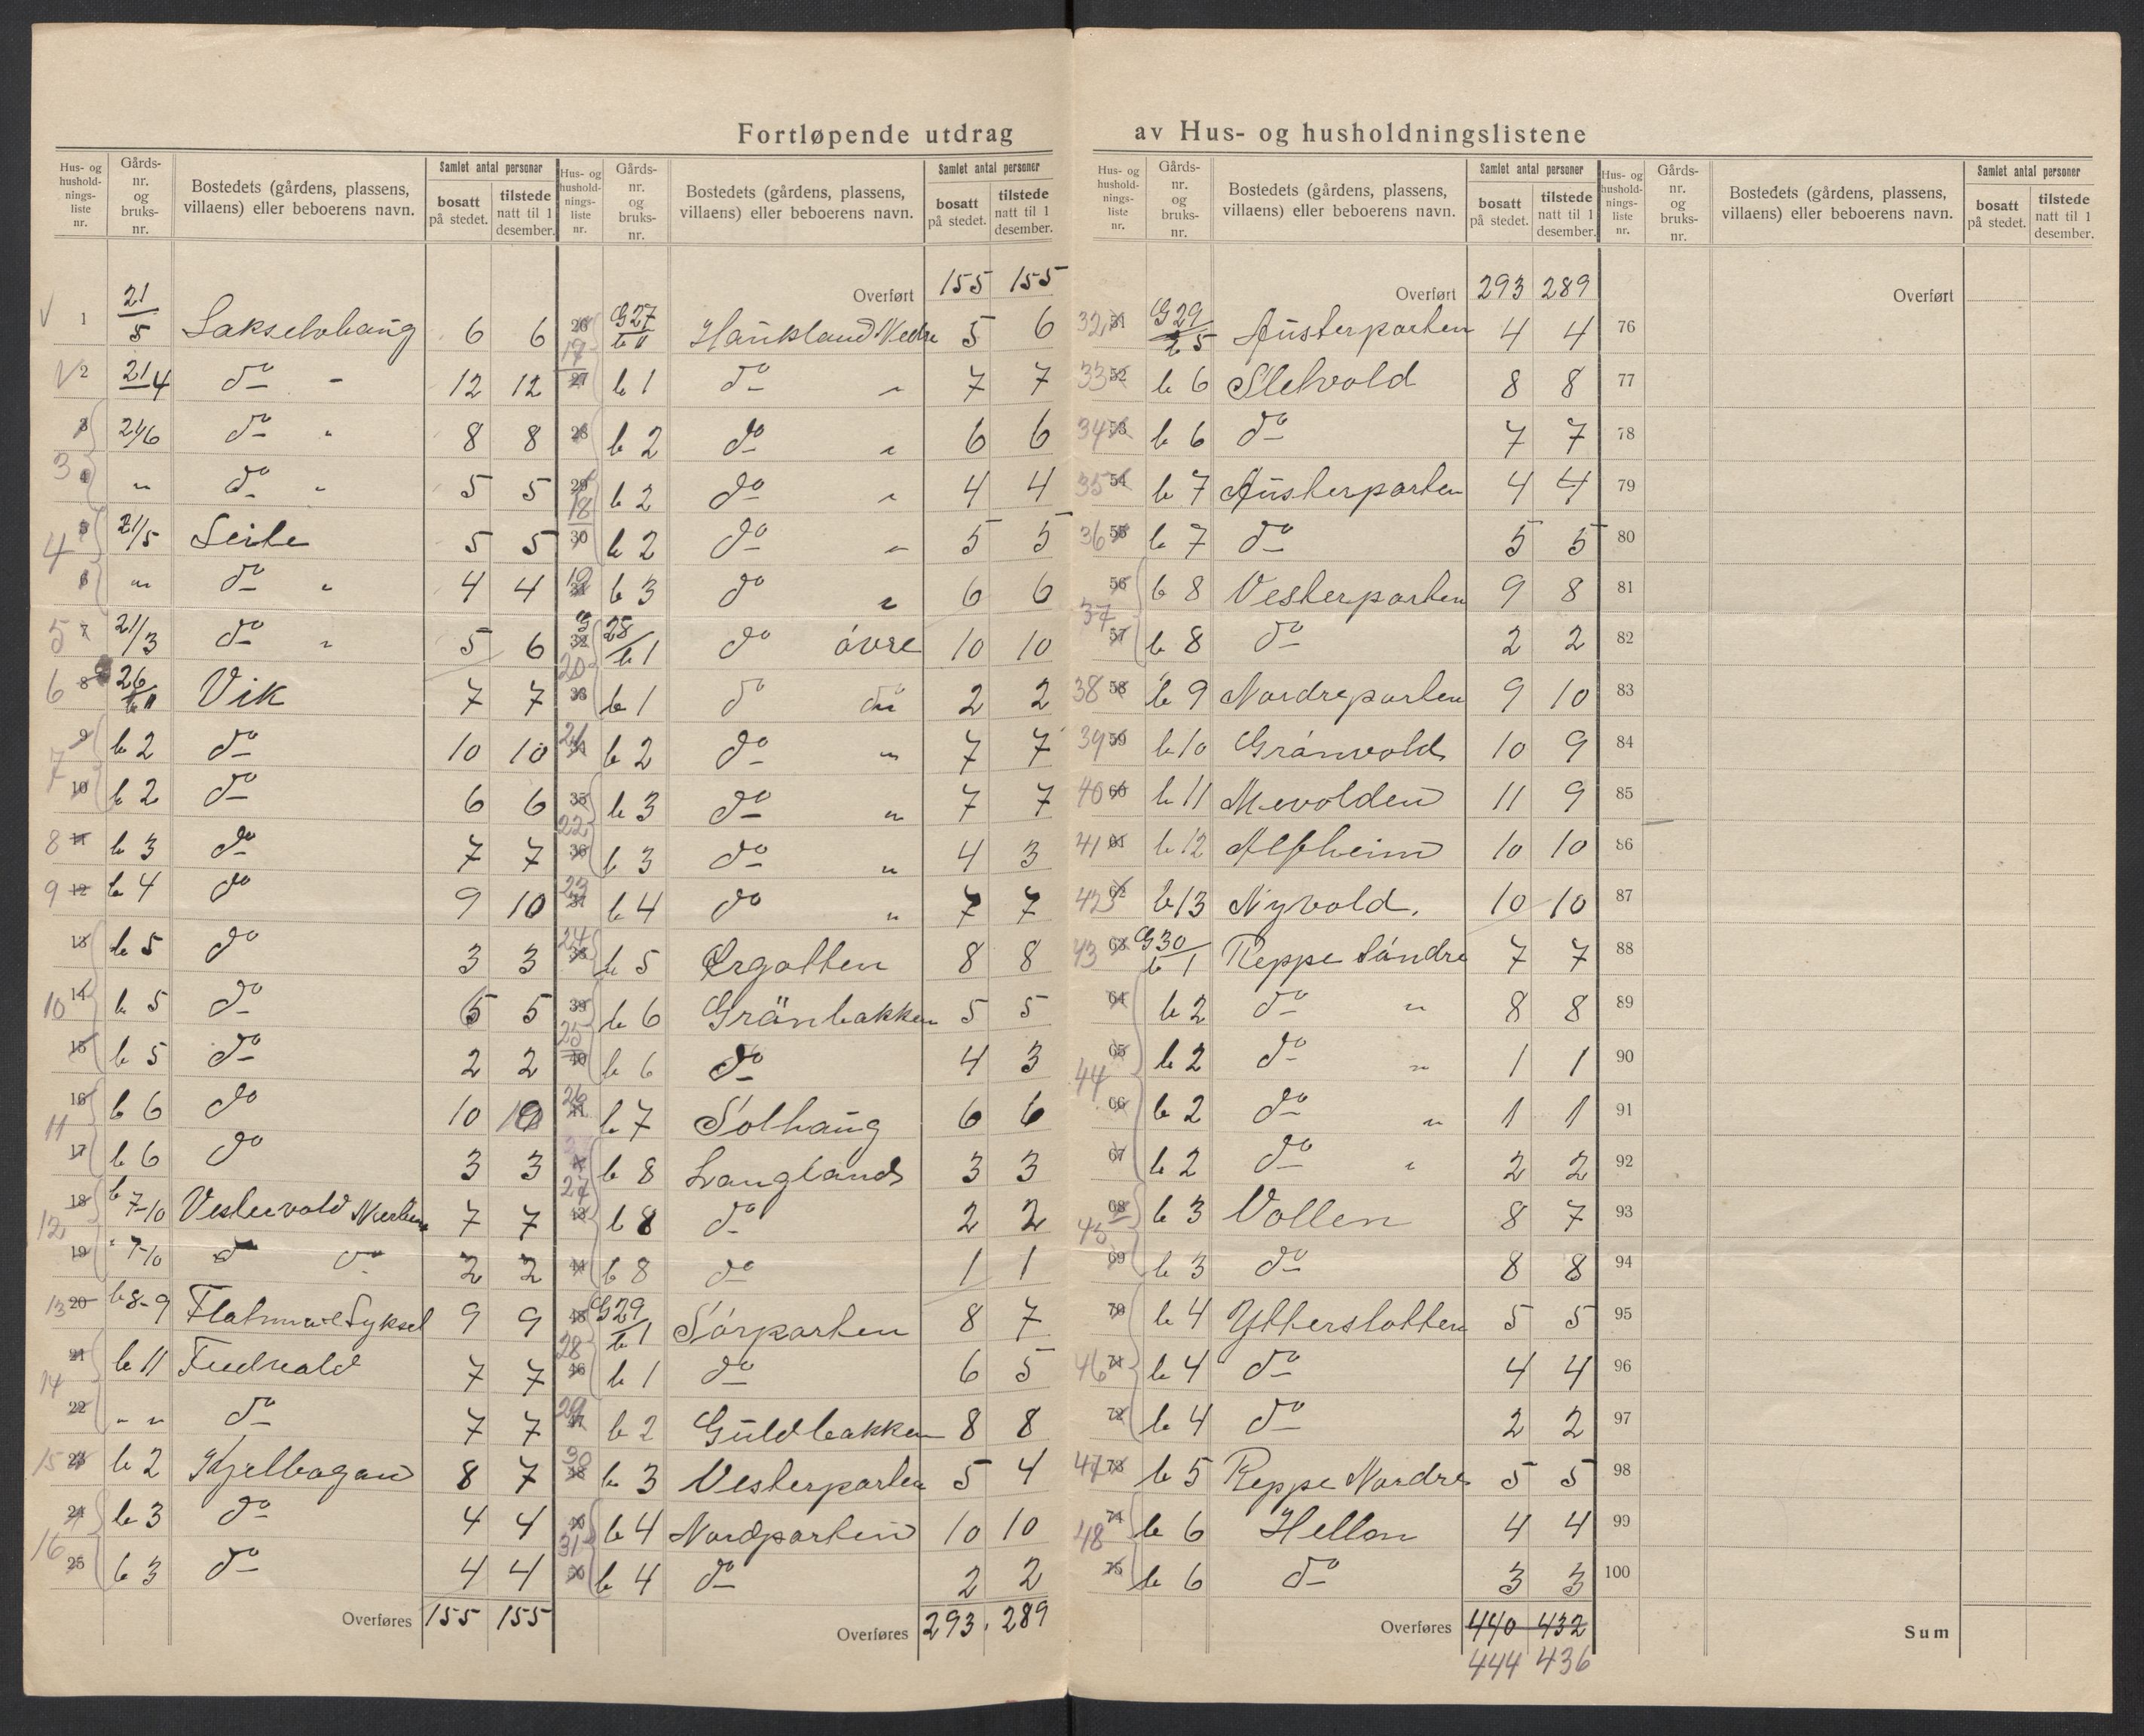 Fortløpende utdrag av Hus- og husholdningslistene
Hus- og hushold-nings-liste nr. Gårds-nr. og bruks-nr. Bostedets (gårdens, plassens, villaens) eller beboerens navn. Samlet antal personer bosatt på stedet. tilstede natt til 1 desember.
1 21/5 Lakselvhaug 6 6
2 21/4 do - 12 12
3 21/6 do " 8 8
4 " do " 5 5
5 21/5 Leite 5 5
6 " do " 4 4
5 7 21/3 do " 5 6
6 8 26/b1 Vik 7 7
9 b 2 do 10 10
10 b 2 do 6 6
8 11 b 3 do 7 7
9 12 b 4 do 9 10
13 b 5 do 3 3
10 14 b 5 do 5 5
15 b 5 do 2 2
16 b 6 do 10 10
11 17 b 6 do 3 3
12 18 b 7-10 Vestervold 7 7
19 " 7-10 do do 2 2
13 20 b 8-9 9 9
21 b 11 7 7
14 22 " " do 7 7
15 23 b 2 8 7
24 b 3 do 4 4
16 25 b 3 do 4 4
Overføres 155 155
Hus- og hushold-nings-liste nr. Gårds-nr. og bruks-nr. Bostedets (gårdens, plassens, villaens) eller beboerens navn. Samlet antal personer bosatt på stedet. tilstede natt til 1 desember.
Overført 155 155
26 G 27 Haukland Nedre 5 6
17 27 b 1 do " 7 7
28 b 2 do " 6 6
29 b 2 do " 4 4
18 30 b 2 do " 5 5
19 31 b 3 do " 6 6
32 G 28/b 1 do øvre 10 10
20 33 b 1 do do 2 2
21 34 b 2 do " 7 7
35 b 3 do " 7 7
22 36 b 3 do " 4 3
23 37 b 4 do " 7 7
24 38 b 5 Ørgotten 8 8
39 b 6 Grönbakken 5 5
25 40 b 6 do 4 3
26 41 b 7 Solhaug 6 6
42 b 8 Langlands 3 3
27 43 b 8 do 2 2
44 b 8 do 1 1
45 G 29/b 1 Sörparten 8 7
28 46 b 1 do 6 5
29 47 b 2 Guldbakken 8 8
30 48 b 3 Vesterparten 5 4
49 b 4 Nordparten 10 10
31 50 b 4 do 2 2
Overføres 293 289
Hus- og hushold-nings-liste nr. Gårds-nr. og bruks-nr. Bostedets (gårdens, plassens, villaens) eller beboerens navn. Samlet antal personer bosatt på stedet. tilstede natt til 1 desember.
Overført 293 289
32 51 G 29/b 5 Austerparten 4 4
33 52 b 6 Sletvold 8 8
34 53 b 6 do 7 7
35 54 b 7 Austerparten 4 4
36 55 b 7 do 5 5
56 b 8 Vesterparten 9 8
37 57 b 8 do 2 2
38 58 b 9 Nordreparten 9 10
39 59 b 10 Grönvold 10 9
40 60 b 11 Mevolden 11 9
41 61 b 12 Alfheim 10 10
42 62 b 13 Nyvold. 10 10
43 63 G 30/b 1 Reppe Söndre 7 7
64 b 2 do " 8 8
65 b 2 do " 1 1
44 66 b 2 do " 1 1
67 b 2 do " 2 2
68 b 3 Vollen 8 7
45 69 b 3 do 8 8
70 b 4 Ytterslotten 5 5
46 71 b 4 do 4 4
72 b 4 do 2 2
47 73 b 5 Reppe Nordre 5 5
74 b 6 Hellan 4 4
48 75 b 6 do 3 3
Overføres 440 432
444 436
Hus- og hushold-nings-liste nr. Gårds-nr. og bruks-nr. Bostedets (gårdens, plassens, villaens) eller beboerens navn. Samlet antal personer bosatt på stedet. tilstede natt til 1 desember.
Overført
76
77
78
79
80
81
82
83
84
85
86
87
88
89
90
91
92
93
94
95
96
97
98
99
100
Sum